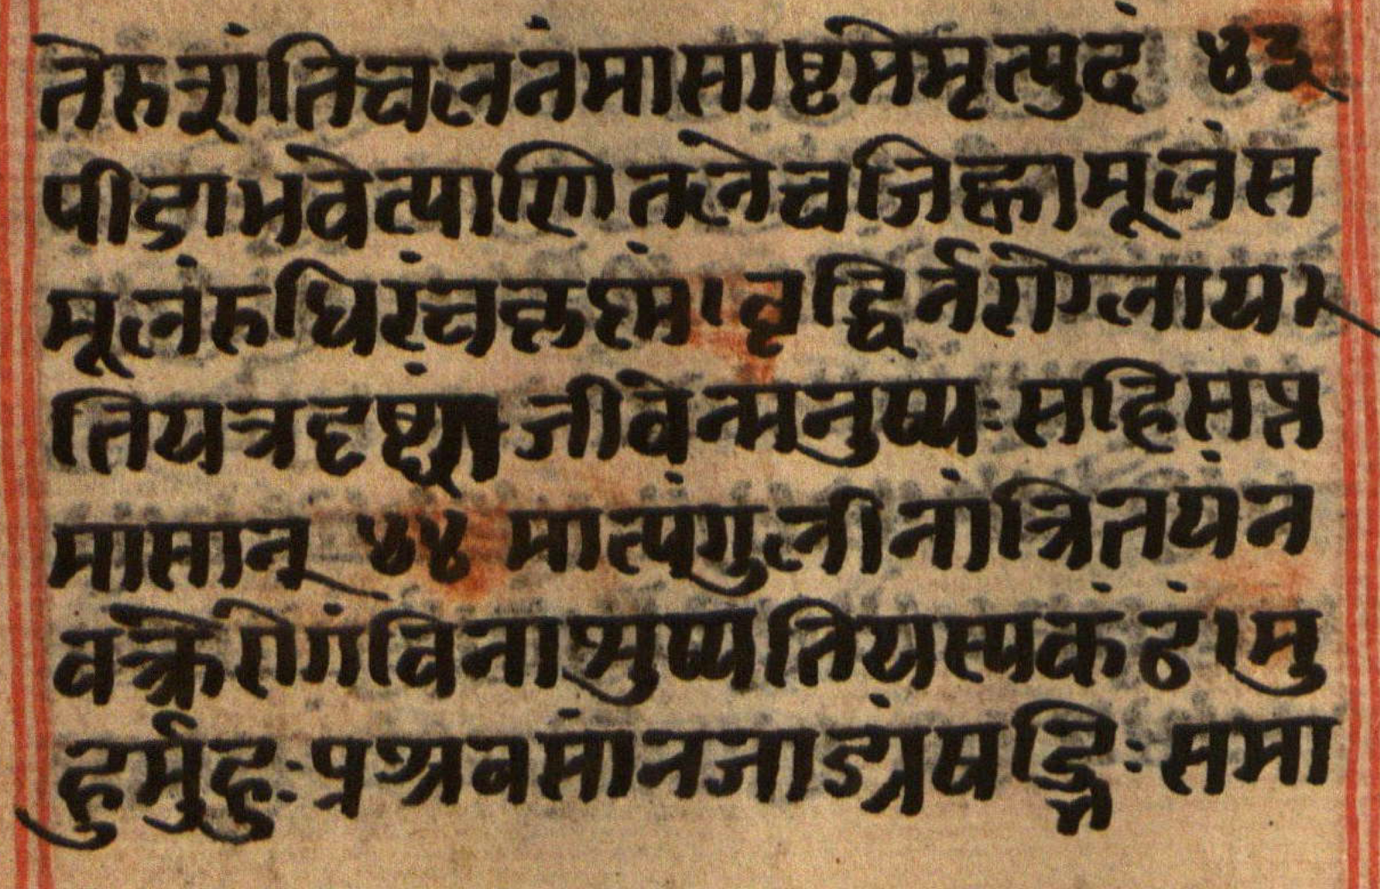 तेरुशंतिचलनंमासाष्टमेमृत्पुदं ४३
पीडाभवेत्पाणितलेचजिह्वामूलंस
मूलंरुधिरंचकृष्मं।वृद्धिर्नरोग्लाय
तियत्रदृष्ट्या जीवेन्मनुष्यःसहिसप्त
मासान् ४४ मात्पंगुलीनांत्रितयंन
वक्रेरोगंविनाशुष्यतियस्पकंठं।मु
हुर्मुहुःप्रश्रवसांनजाड्यंषद्भिःसमा